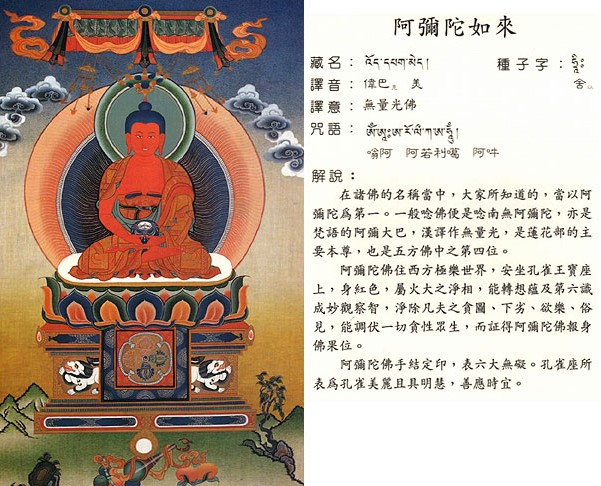 阿彌陀如來
藏名：འོད་དཔག་མེད། 種子字：ཧྲཱིཿ
譯音：偉巴克 美 舍以
譯意：無量光佛
咒語：ཨོཾ་ཨཱཿཨ་རོ་ལི་ཀ་ཨ་ཧཱུྃ།
嗡阿 阿若利噶 阿吽
解說：
在諸佛的名稱當中，大家所知道的，當以阿
彌陀爲第一。一般唸佛便是唸南無阿彌陀，亦是
梵語的阿彌大巴，漢譯作無量光，是蓮花部的主
要本尊，也是五方佛中之第四位。
阿彌陀佛住西方極樂世界，安坐孔雀王寶座
上，身紅色，屬火大之淨相，能轉想蘊及第六識
成妙觀察智，淨除凡夫之貪圖、下劣、欲樂、俗
見，能調伏一切貪性眾生，而証得阿彌陀佛報身
佛果位。
阿彌陀佛手結定印，表六大無礙。孔雀座所
表爲孔雀美麗且具明慧，善應時宜。